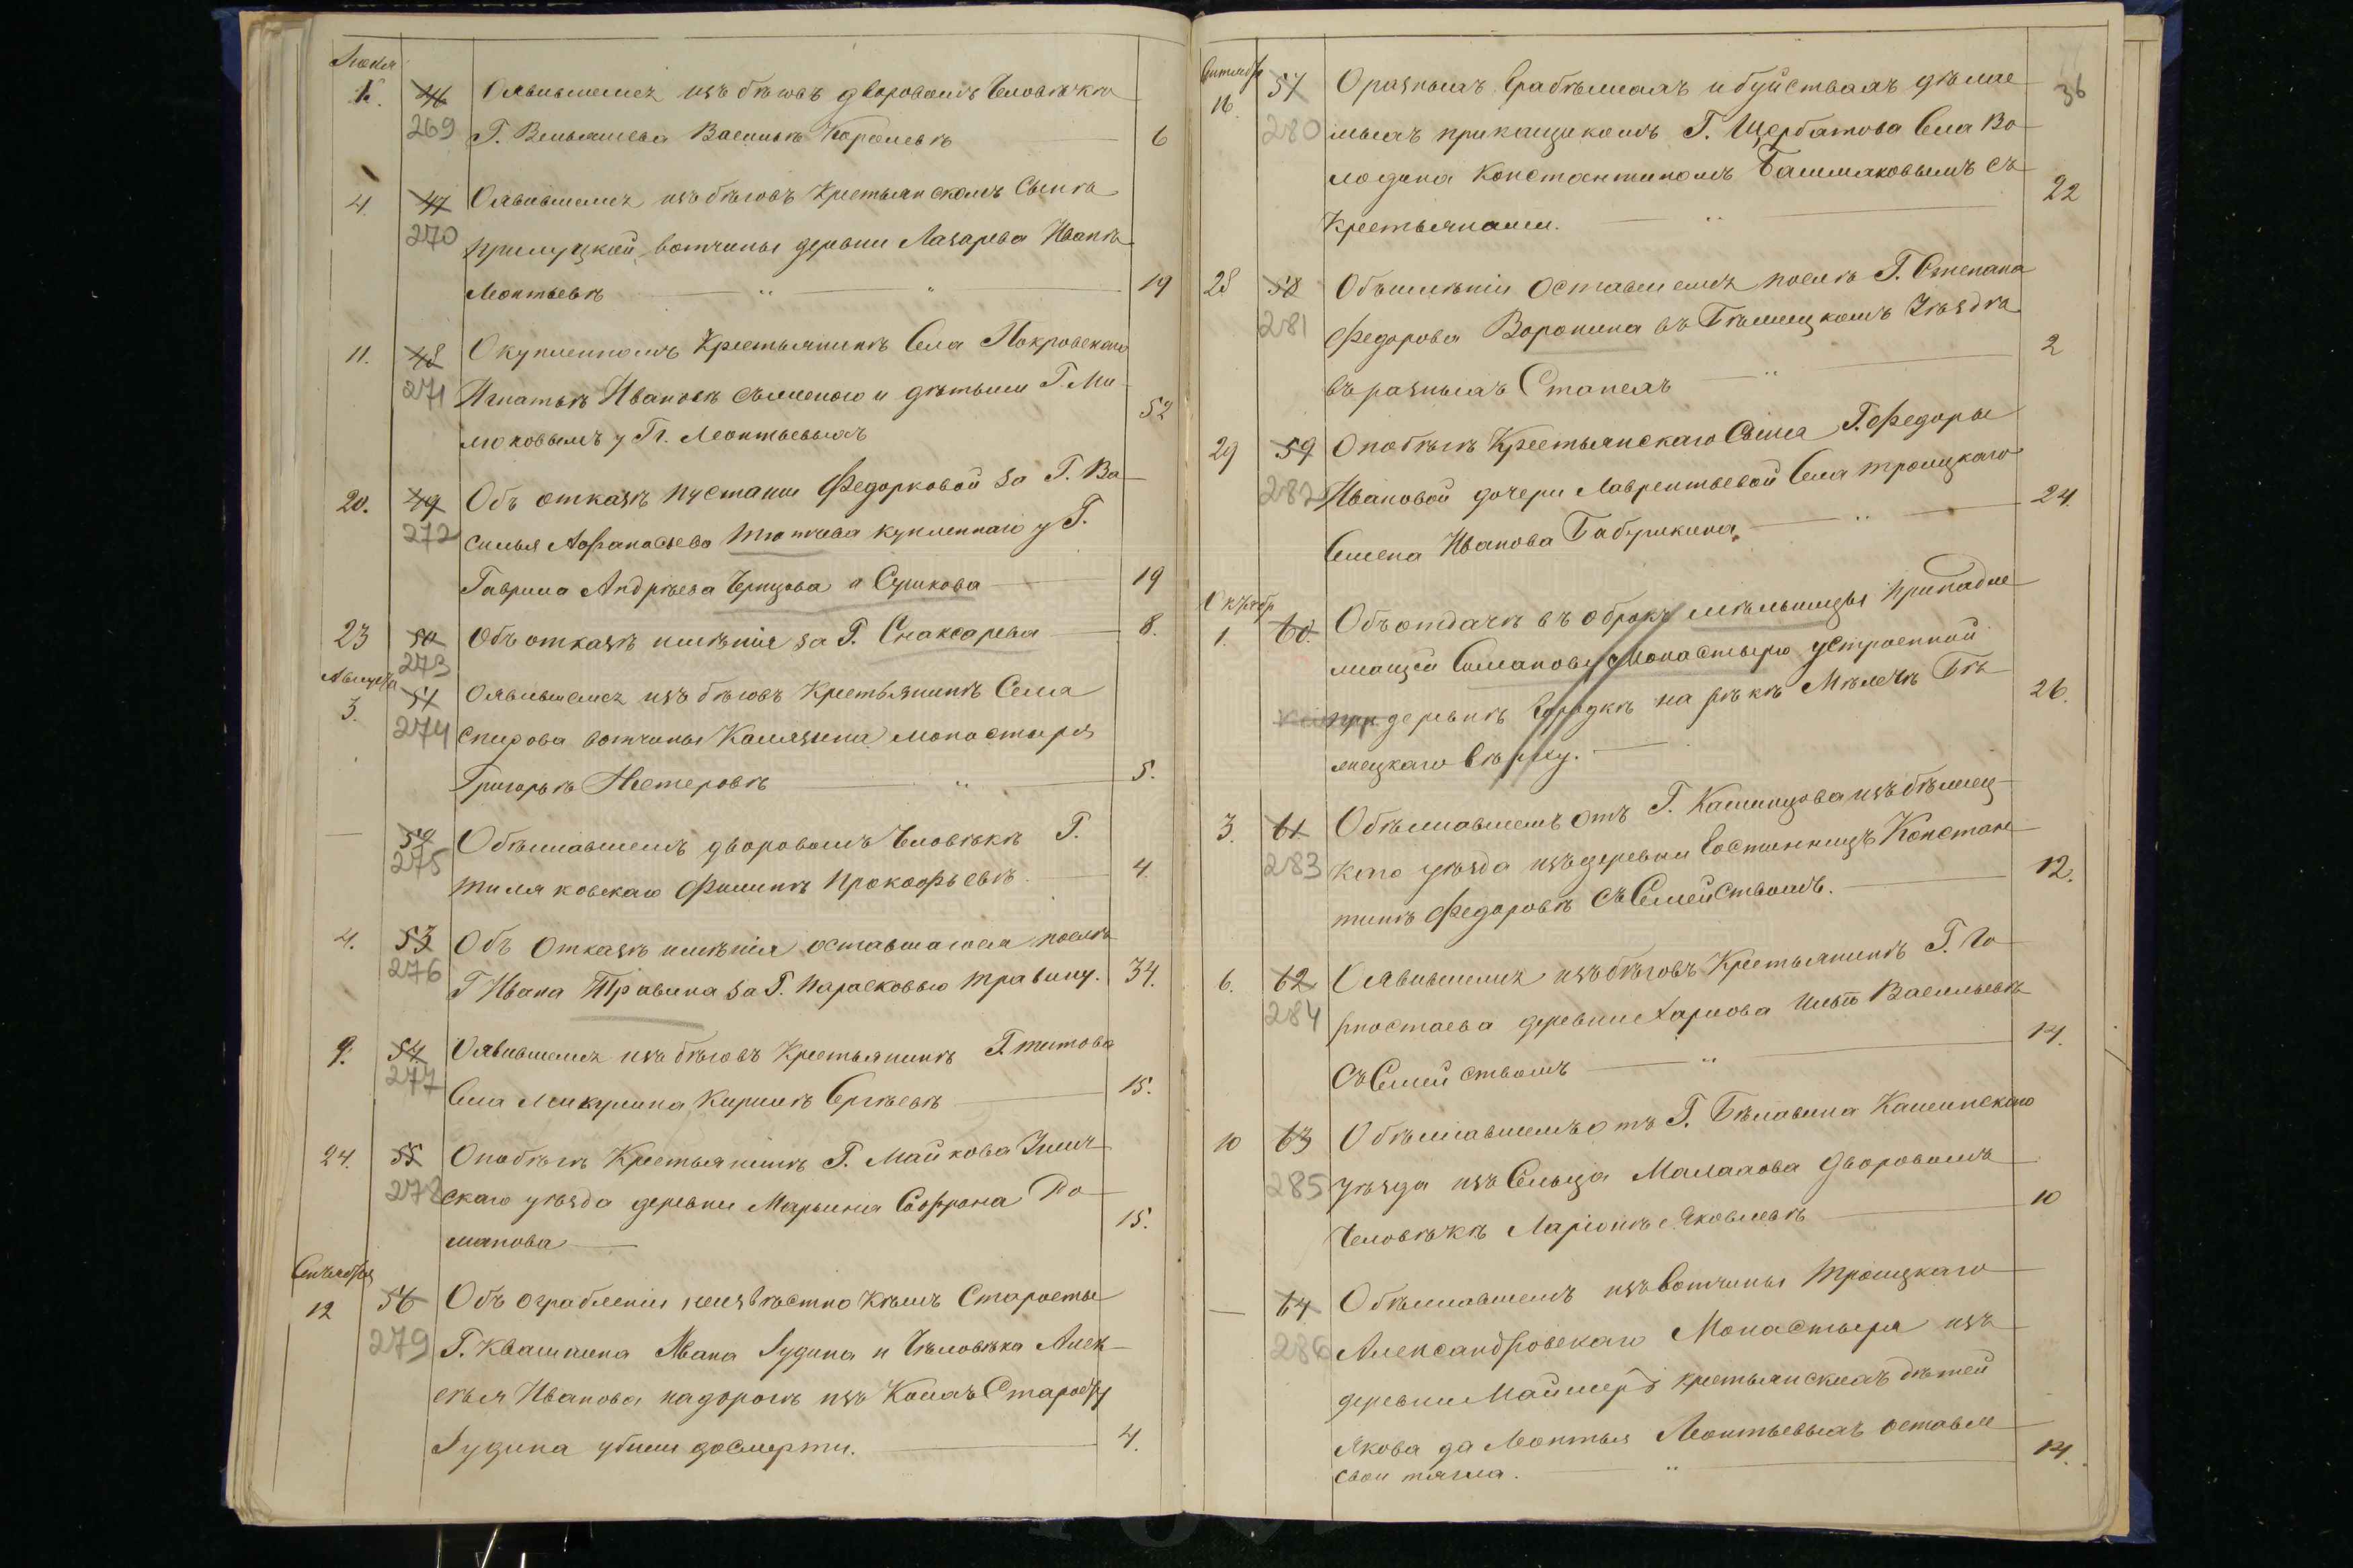 Іюля
1. 46 Оявившемся изъ бѣговъ дворовомъ Человѣкѣ
269 Г. Вельяшева Васильѣ Королевѣ 6
4. 47 Оявившемся изъ бѣговъ Крестьянскомъ Сынѣ
270 Прилуцкой вотчины деревни Лазарева Иванѣ
Леонтьевѣ 19
11. 48 О купленномъ Крестьянинѣ Села Покровскаго
271 Игнатьѣ Ивановѣ съженою и дѣтьми Г. Ми-
люковымъ у Гг. Леонтьевыхъ 52
20. 49 Объ отказѣ пустоши Федорковой за Г. Ва-
272 силья Афанасьева Тютчева купленнаго у Г.
Гаврила Андрѣева Чернцова и Сушкова 19
23 50 Объ отказѣ имѣнія за Г. Снаксарева 8.
273
Августа
3. 51 Оявившемся изъ бѣговъ Крестьянинѣ Села
274 Спирова вотчины Калязина монастыря
Григорьѣ Нестеровѣ 5.
— 52 Обѣжавшемъ дворовомъ Человѣкѣ Г.
275 Филипѣ Прокофьевѣ 4.
4. 53 Объ Отказѣ имѣнія оставшагося послѣ
276 Г Ивана Травина за Г. Парасковью Травину. 34.
9. 54 Оявившемся изъ бѣговъ Крестьянинѣ Г. Титова
277 Села Микулина Кирилѣ Сергѣевѣ 15.
24. 55 Опобѣгѣ Крестьянинѣ Г. Майкова Углич-
278 скаго уѣзда деревни Марьина Софрона Ро-
манова 15.
Сентября
12 56 Объ ограбленіи неизвѣстно кѣмъ Старосты
279 Г. Квашнина Ивана Гудина и Человѣка Алек-
сѣя Иванова надорогѣ изъ Коихъ Старосту
Гудина убили досмерти. 4.
36
Сентября
16. 57 Оразныхъ Грабѣжахъ и буйствахъ дѣлае-
280 мыхъ прикащикомъ Г. Щербатова Села Во-
лодина Константиномъ Башмаковымъ съ
Крестьянами. 22
28 58 Обимѣніи Оставшемся послѣ Г. Степана
281 Федорова Воронина въ Бѣжецкомъ Уѣздѣ
въразныхъ Станахъ 2
29 59 Опобѣгѣ Крестьянскаго Сына Г. Федоры
282 Ивановой дочери Лаврентьевой Села Троицкаго
Семена Иванова Бабушкина 24.
Октября
1. 60. Объотдачѣ въ оброкъ мѣльницы принадле-
жащей Симанову Монастырю устроенной
при деревнѣ Городкѣ на рѣкѣ Мѣлечѣ Бѣ-
жецкаго Вѣрху. 26.
3. 61 Обѣжавшемъ отъ Г. Кашинцова изъ бѣжец-
283 каго уѣзда изъ деревни Гостинницъ Констан-
тинѣ Федоровѣ съ Семействомъ. 12.
6. 62 Оявившемся изъ бѣговъ Крестьянинѣ Г. Го-
284 рностаева деревни Харлова Ильѣ Васильевѣ
Съ Семействомъ 14.
10 63 Обѣжавшемъ отъ Г. Бѣлавина Кашинскаго
285 уѣзда изъ Сельца Малахова Дворовомъ
Человѣкѣ Ларіонѣ Яковлевѣ 10
— 64 Обѣжавшемъ изъ вотчины Троицкаго
286 Александровскаго Монастыря изъ
деревни крестьянскихъ дѣтей
Якова да Леонтья Леонтьевыхъ оставя
свои тягла. 14.